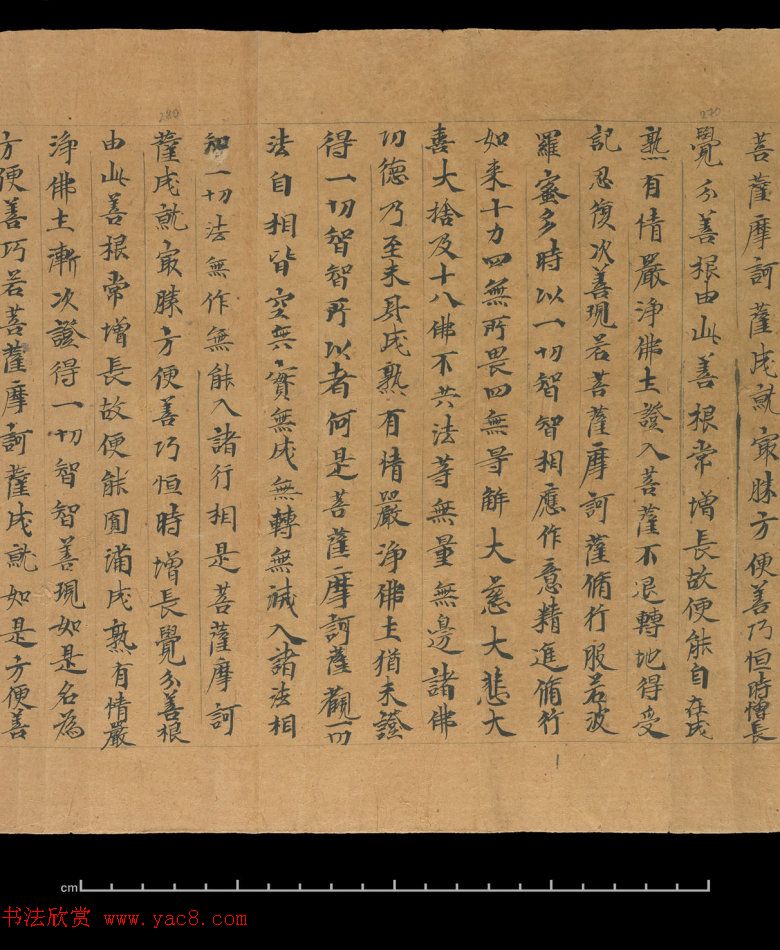 270
280
菩薩摩訶薩成就宲勝方便善巧恒時增長
覺分善根由此善根常增長故便能自在成
熟有情嚴淨佛土證入菩薩不退轉地得受
記忍復次善現若菩薩摩訶薩脩行服若波
羅蜜多時以一切智智相應作意精進脩行
如来十力四無所畏四無导解大慈大悲大
喜大捨及十八佛不共法等無量無邊諸佛
功德乃至未具成熟有情嚴淨佛土猶未證
得一切智智所以者何是菩薩摩訶薩觀一切
法自相皆空無實無成無轉無滅入諸法相
知一切法無作無能入諸行相是菩薩摩訶
薩成就宲勝方便善巧恒時增長覺分善根
由此善根常增長故便能圓滿成熟有情嚴
淨佛土漸次證得一切智智善現如是名為
方便善巧若菩薩摩訶薩成就如是方便善
cm
书法欣赏 www.yac8.com